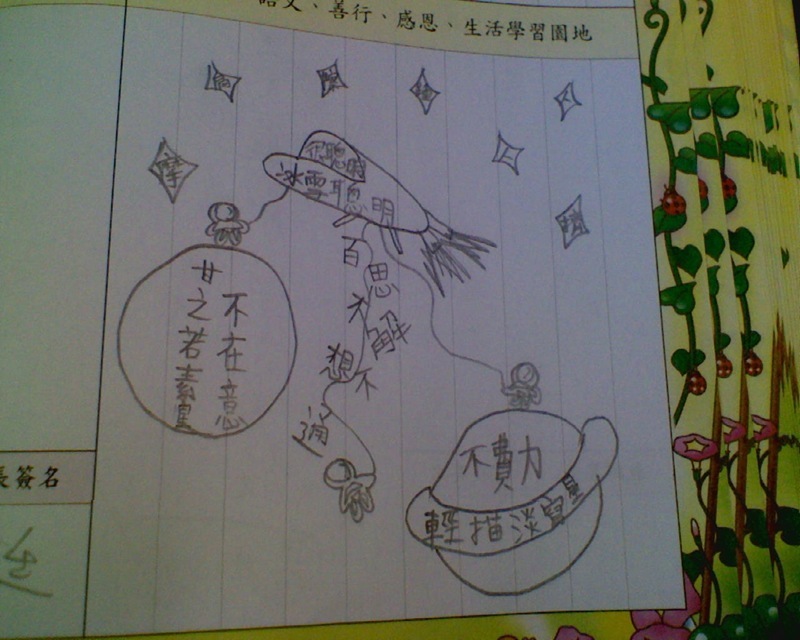 語文、善行、感恩、生活學習園地
很聰明
冰雪聰明
不在意
甘之若素星
百思不解
想不通
不費力
輕描淡寫星
長簽名